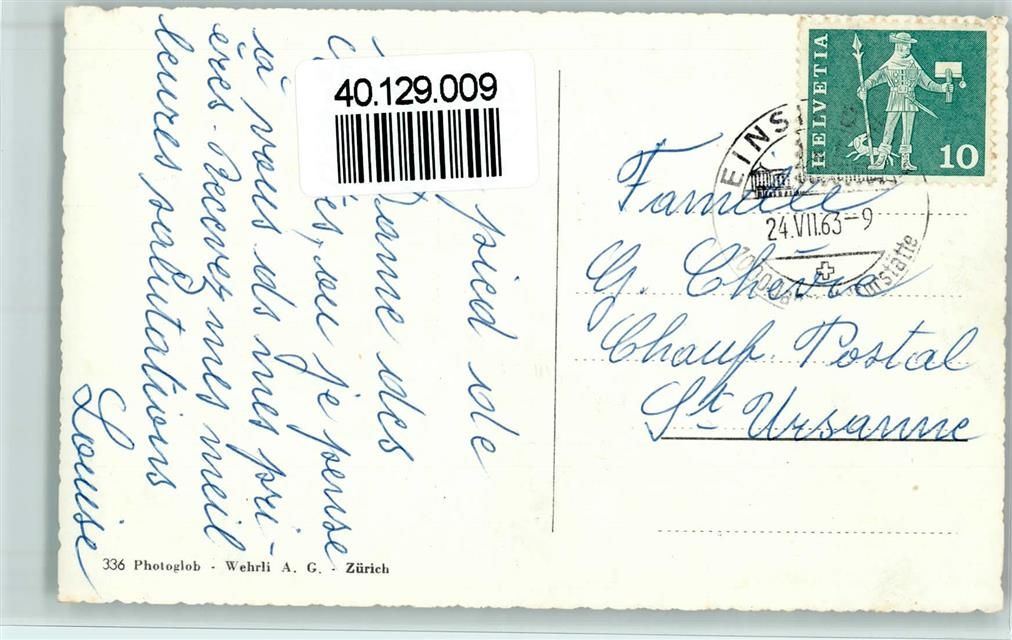 pied de
Dame des
ès, ou je pense
à vous ds mes pri-
ères. Recevez mes meil
leures salutations
Louise
40.129.009
HELVETIA
10
EINSI
24.VII.63-9
Famille
G. Chèvre
Chauf. Postal
St Ursanne
336 Photoglob - Wehrli A. G. - Zürich